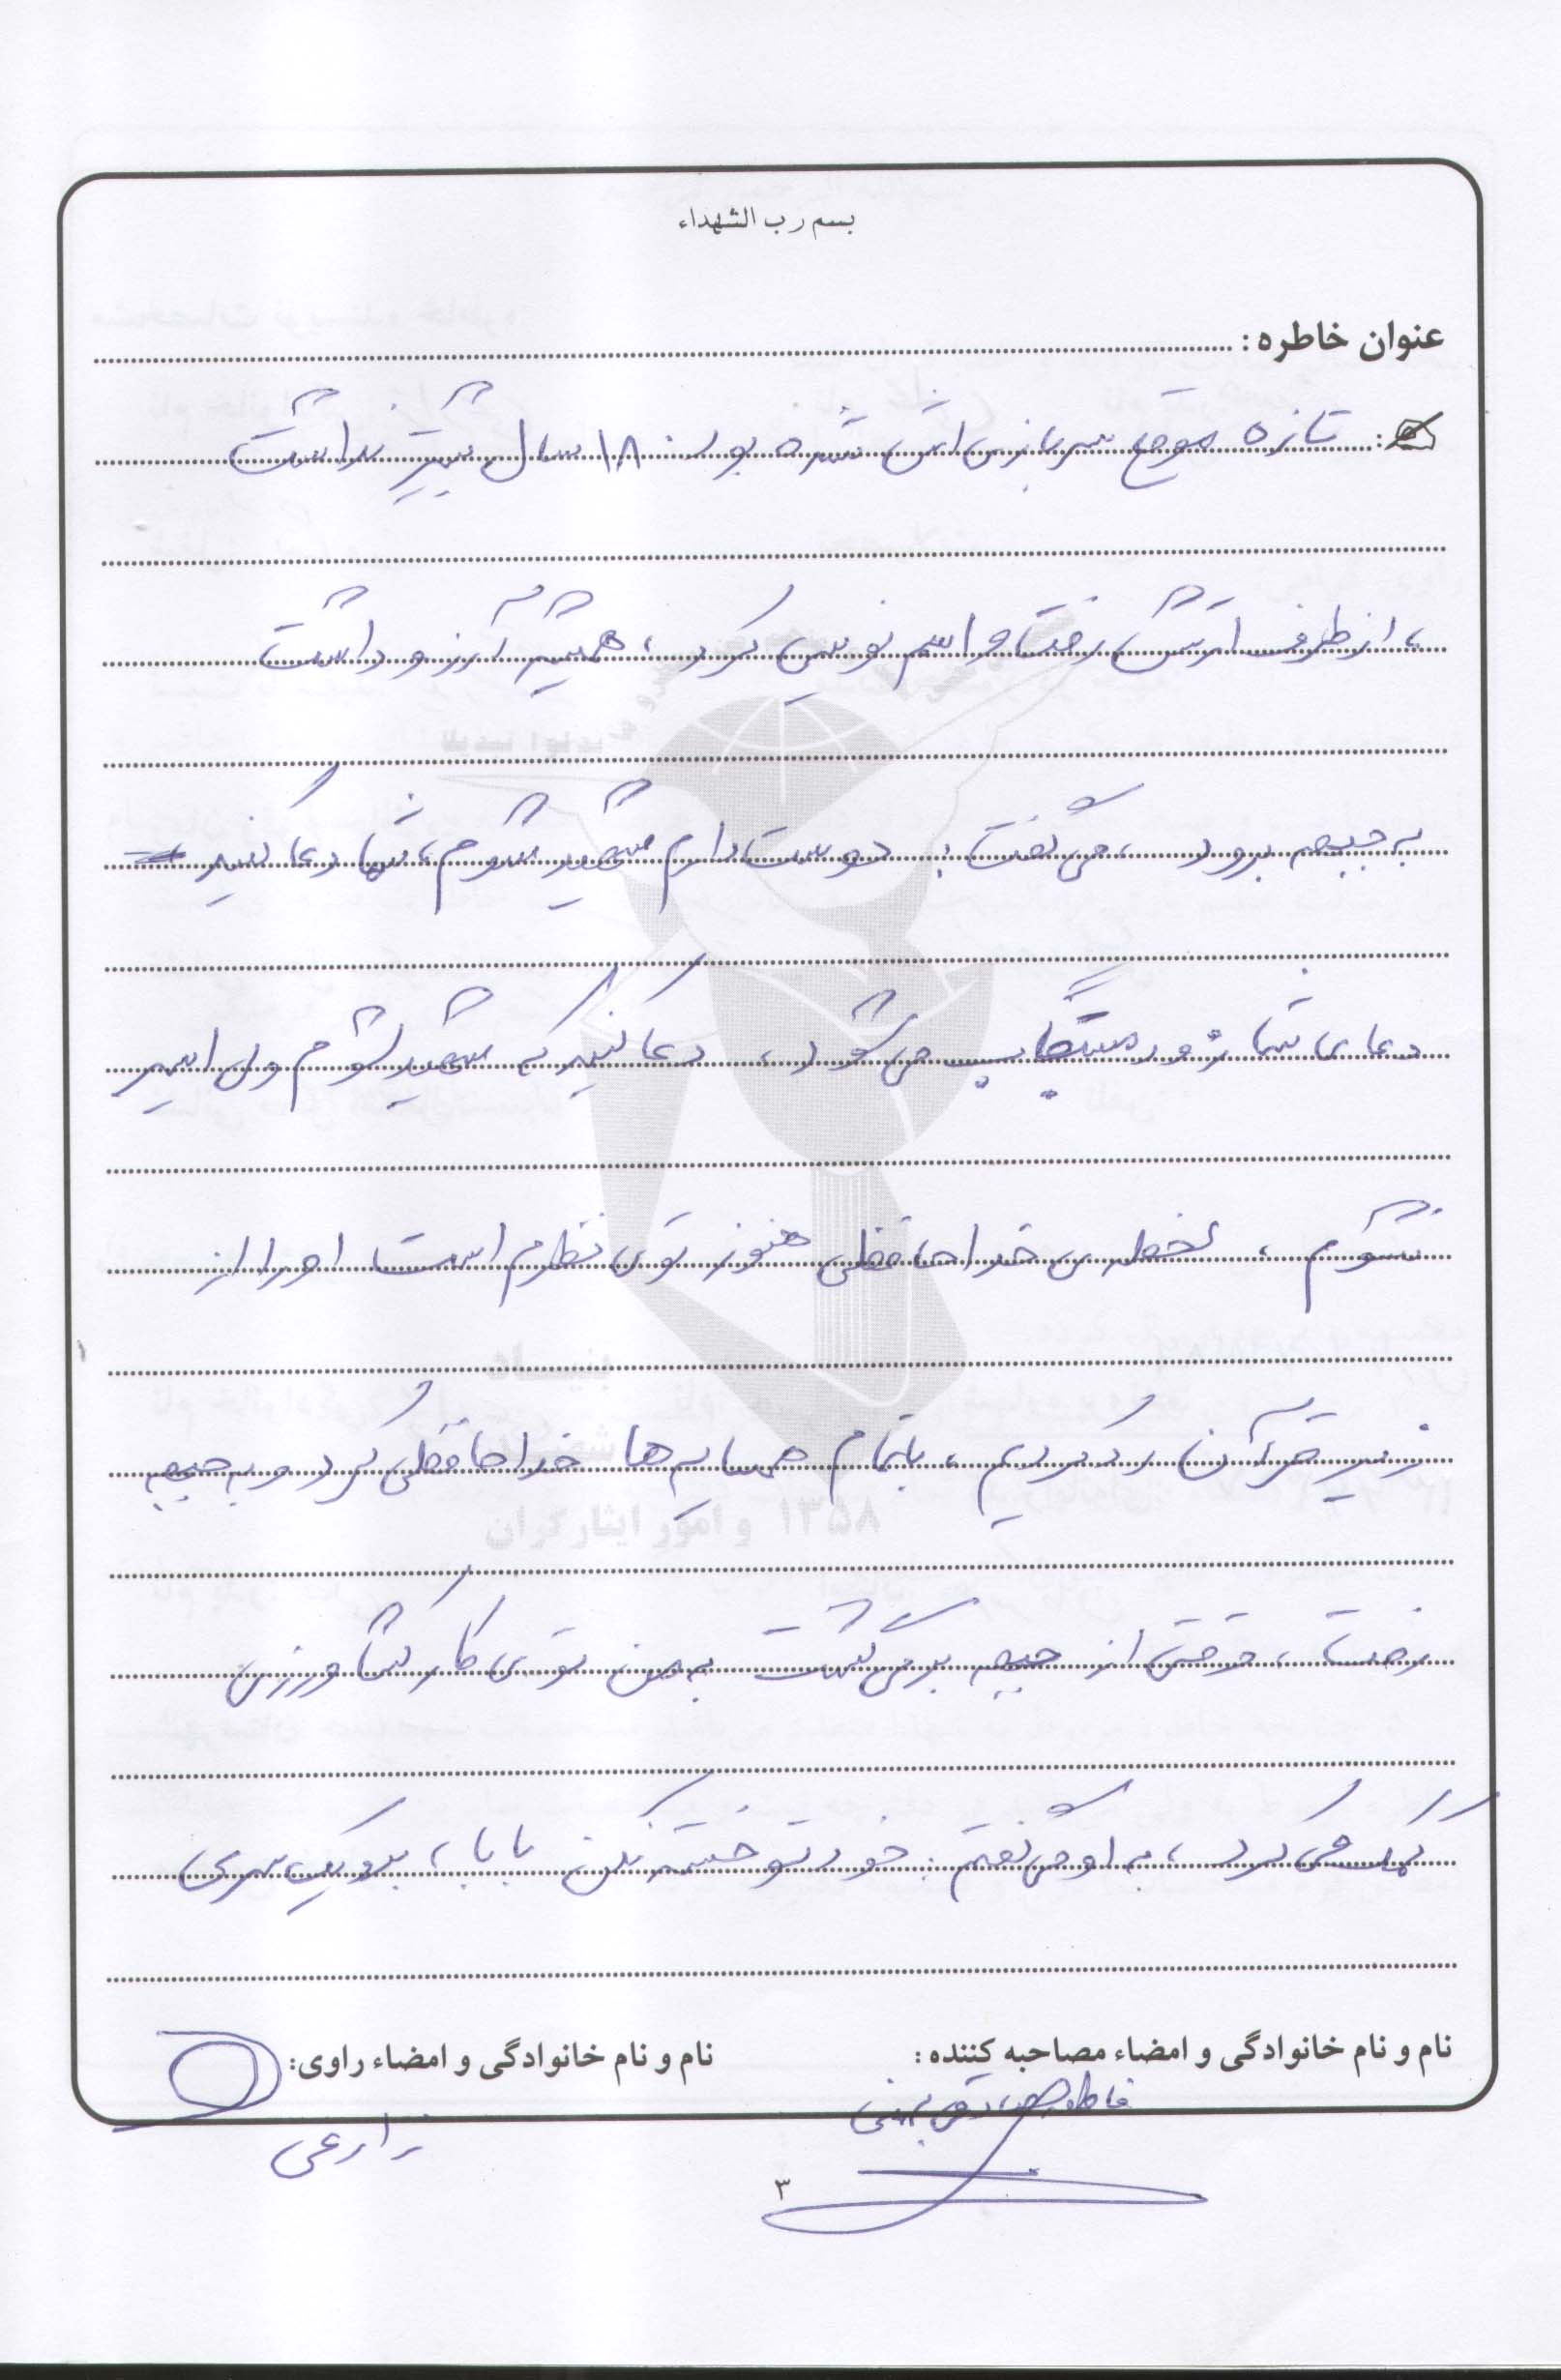 بسم رب الشهداء
عنوان خاطره :
تازه موقع سربازی اش شده بود. ۱۸ سال بیشتر نداشت
، از طرف ارتش رفت و اسم نویسی کرد ، همیشه آرزو داشت
به جبهه برود ، می گفت : دوست دارم شهید شوم ، شما دعا کنید
دعای شما زود مستجاب می شود ، دعا کنید که شهید بشوم ولی اسیر
نشوم ، لحظه ی خداحافظی هنوز توی نظرم است او را از
زیر قرآن رد کردیم ، با تمام همسایه ها خداحافظی کرد و به جبهه
رفت ، وقتی از جبهه برمی گشت به من توی کار کشاورزی
کمک می کرد ، به او می گفتم : خودتو خسته نکن بابا ، برو یک سری
نام و نام خانوادگی و امضاء مصاحبه کننده :
نام و نام خانوادگی و امضاء راوی:
فاطمه
زارعی
۳
بنیاد
و امور ایثارگران ۱۳۵۸